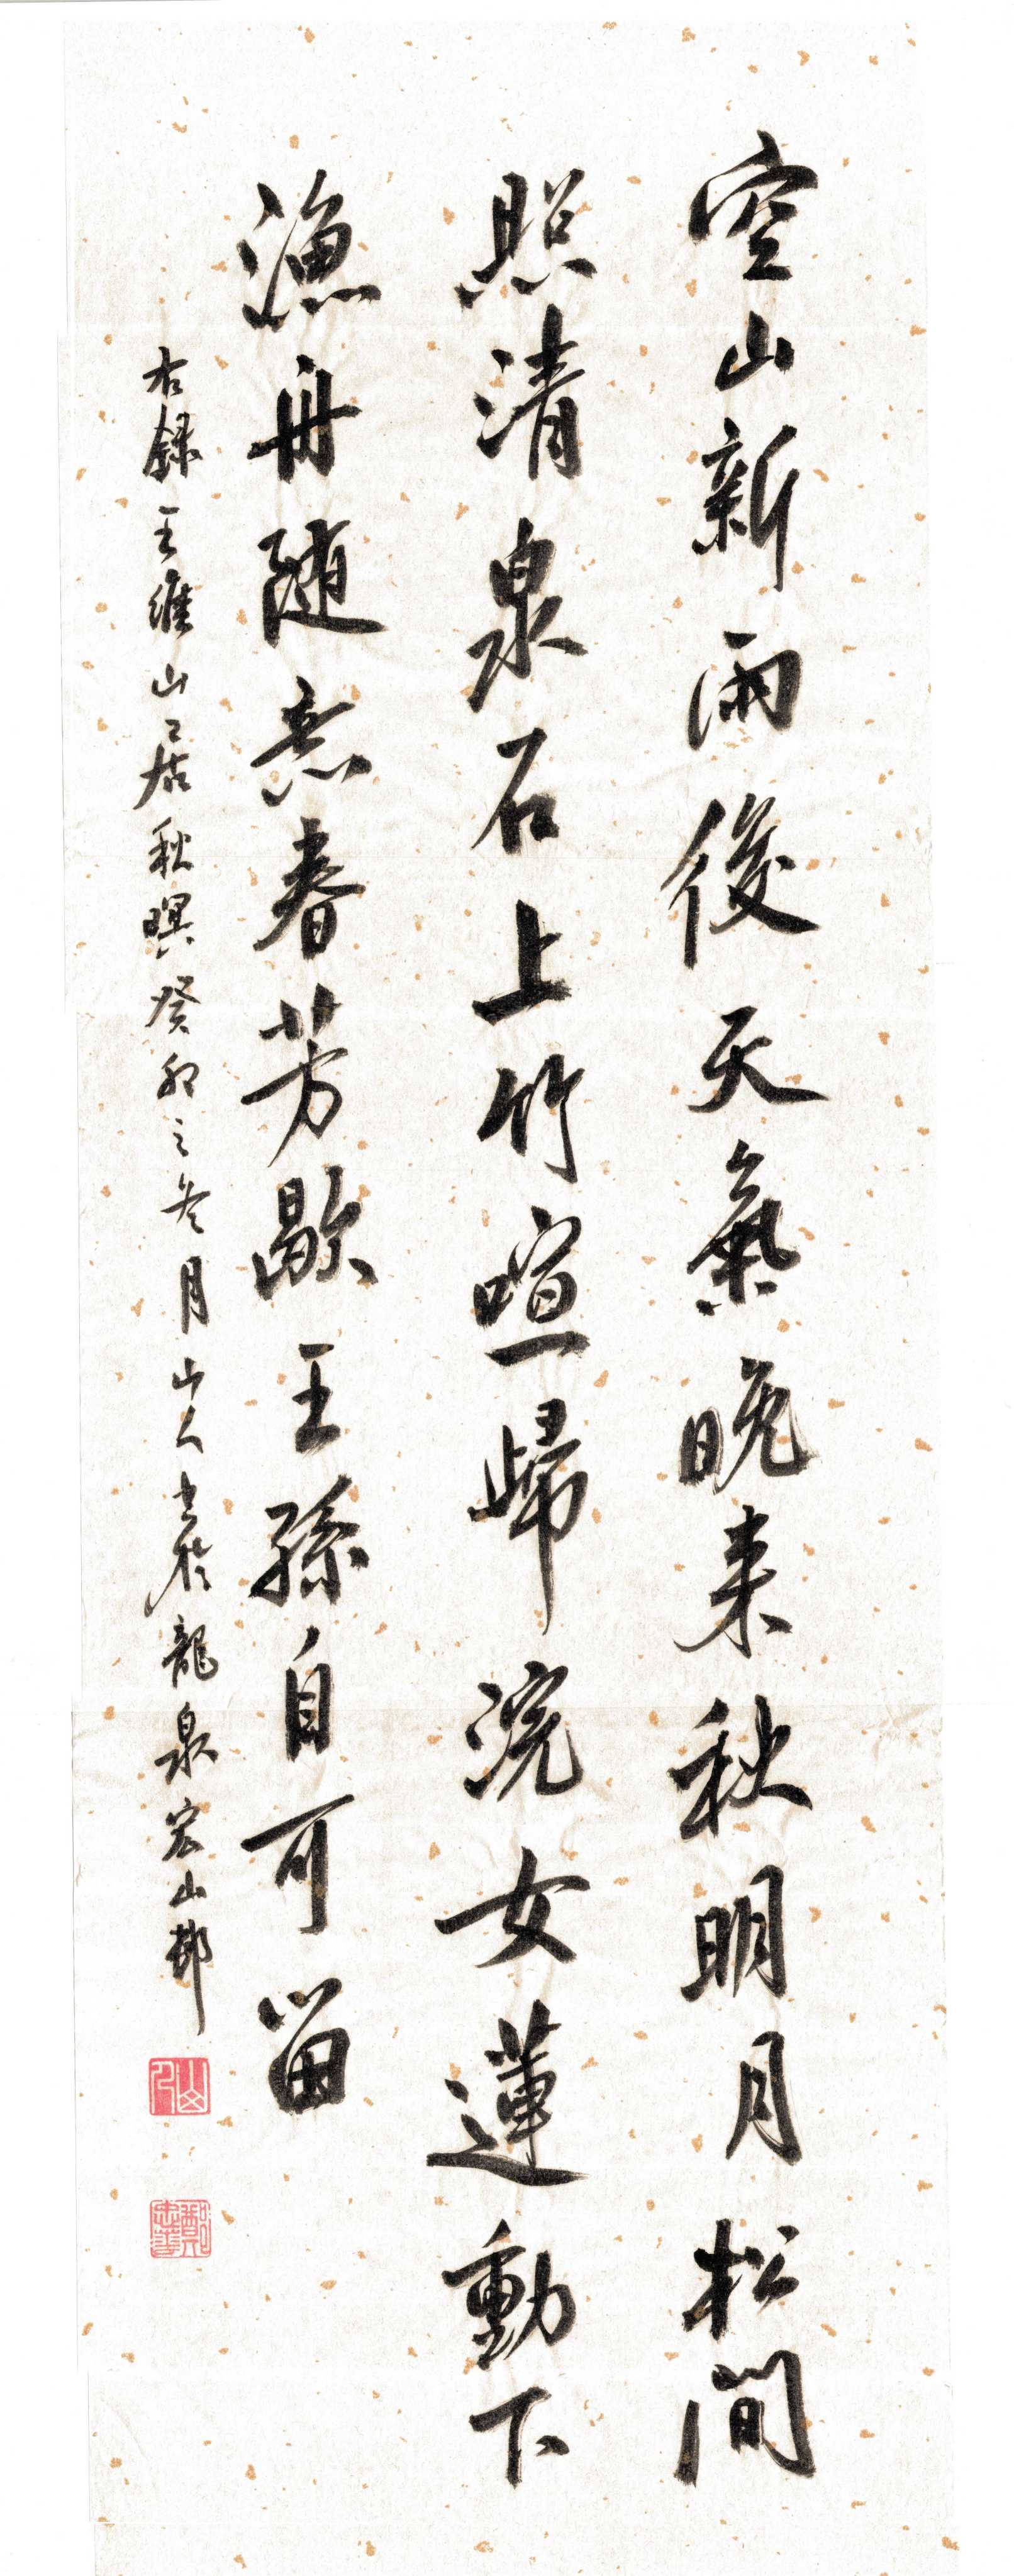 空山新雨後天氣晚来秋明月松間
照清泉石上竹喧歸浣女蓮動下
漁舟随意春芳歇王孫自可留
右録王維山居秋暝癸卯之冬月山人书於龍泉宏山邨